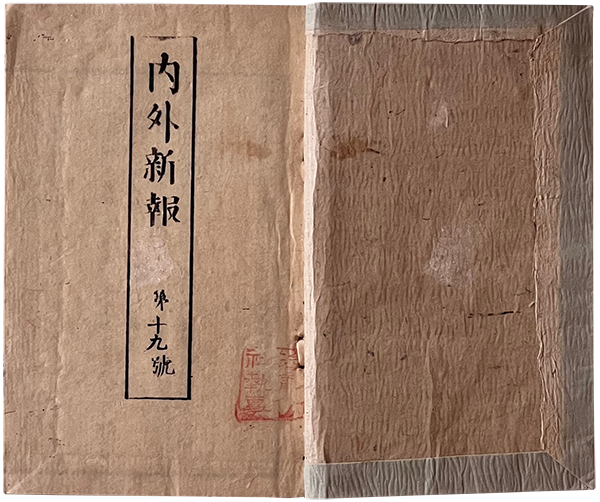 内外新報
第十九號